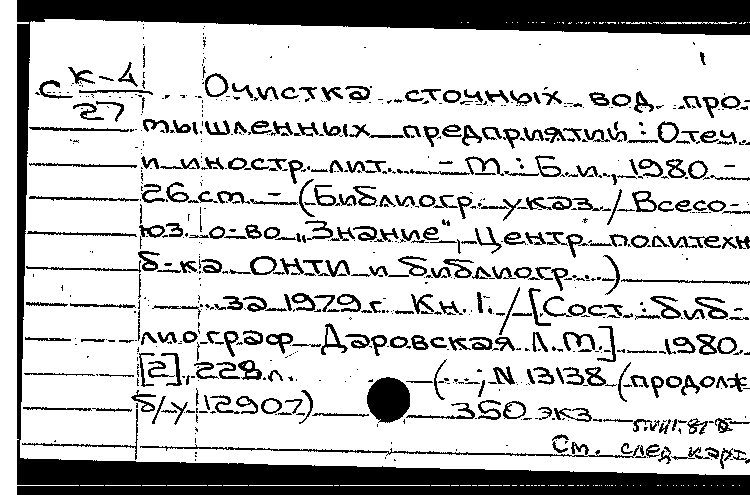 1
С К-4/27 Очистка сточных вод про-
мышленных предприятий : Отеч.
и иностр. лит. ... - М. : Б.и., 1980. -
26 см. - (Библиогр. указ. / Всесо-
юз. о-во „Знание“, Центр. политехн
б-ка. ОНТИ и библиогр. ...)
... за 1979 г. Кн. 1. / [Сост.: биб-
лиограф Даровская Л.М.] 1980.
[2], 228 л. (...; N 13138 (продолж
б/у 12907) 350 экз
5.VIII.81
См. след карт.